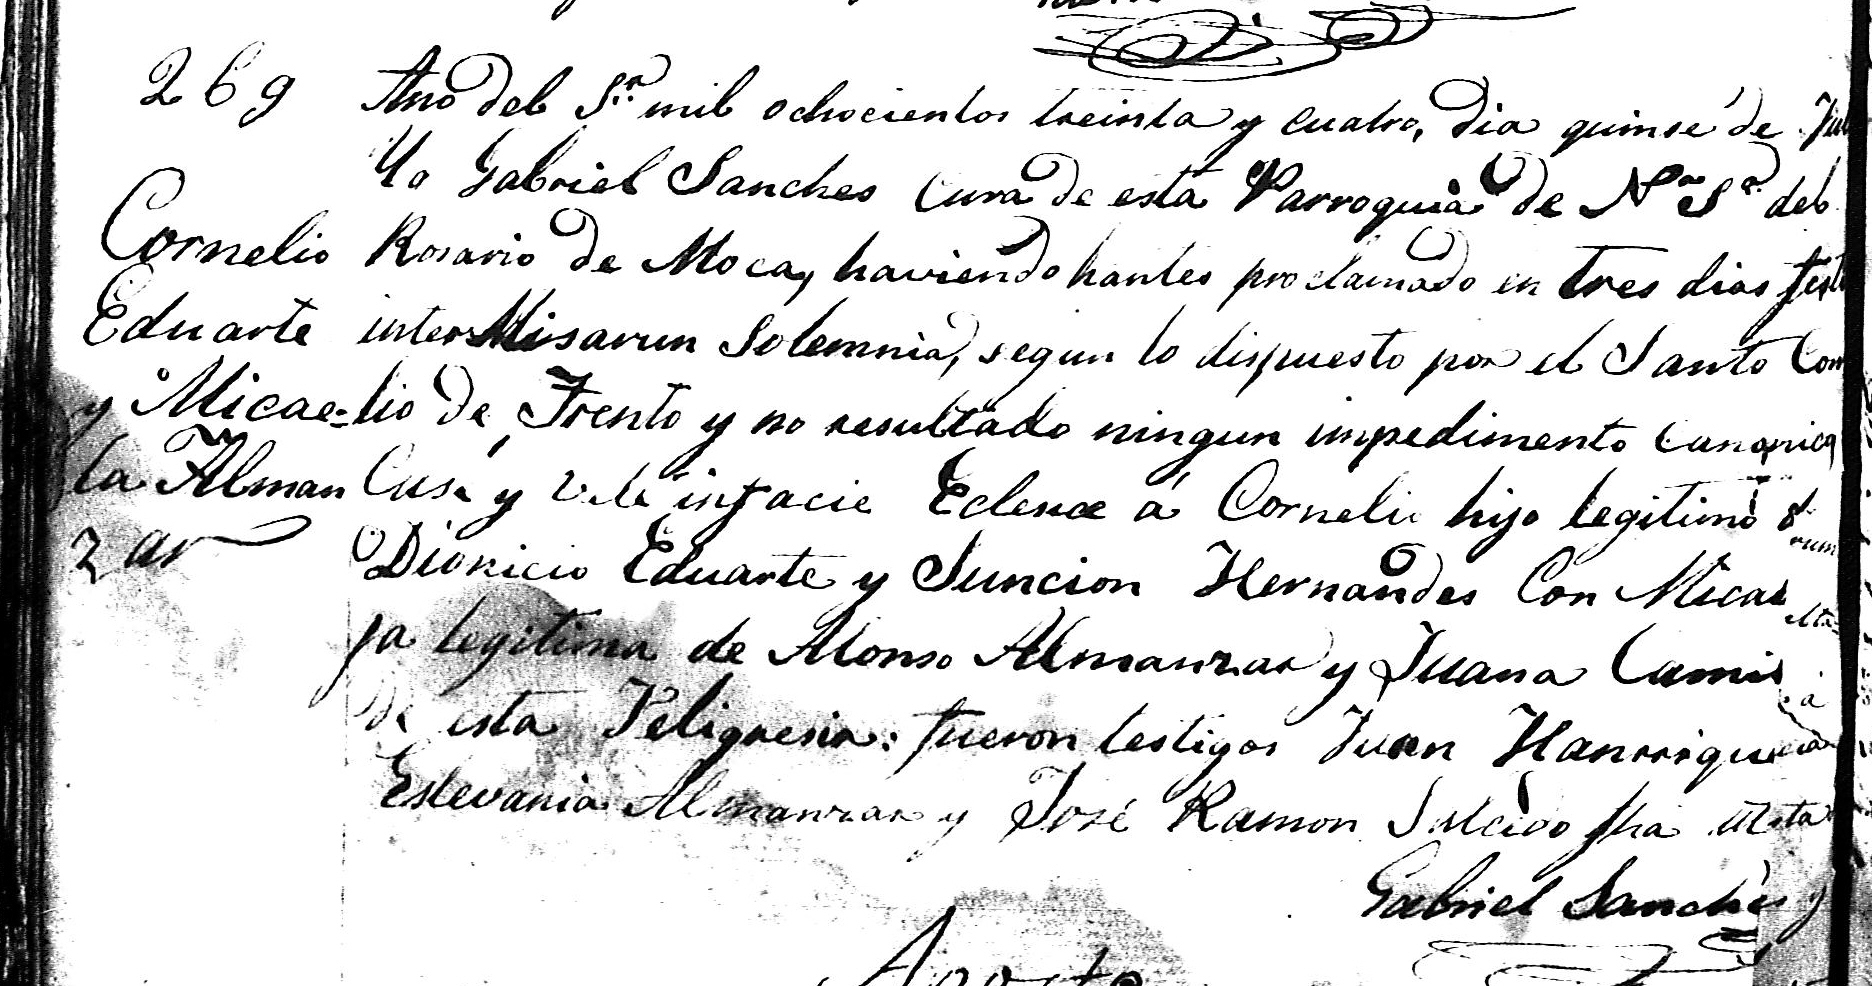 269
Año del Sr. mil ochocientos treinta y cuatro, dia quinse de Jul
Yo Gabriel Sanches Cura de esta Parroquia de Na Sa del
Cornelio
Rosario de Moca, haviendo hantes proclamado en tres dias fest
Eduarte
inter Misarun Solemnia, segun lo dispuesto por el Santo Con
y Micae=
lio de Trento y no resultado ningun impedimento Canonico
la Alman
Case y Vele infacie Eclesiæ á Cornelio hijo legitimo d
zar
Dionicio Eduarte y Suncion Hernandes Con Micae
ja legitima de Alonso Almanzar y Juana
de esta Feligresia: fueron testigos Juan Hanrrique
Estevania Almanzar y José Ramon Salcedo fha ut
Gabriel Sanches
Agosto